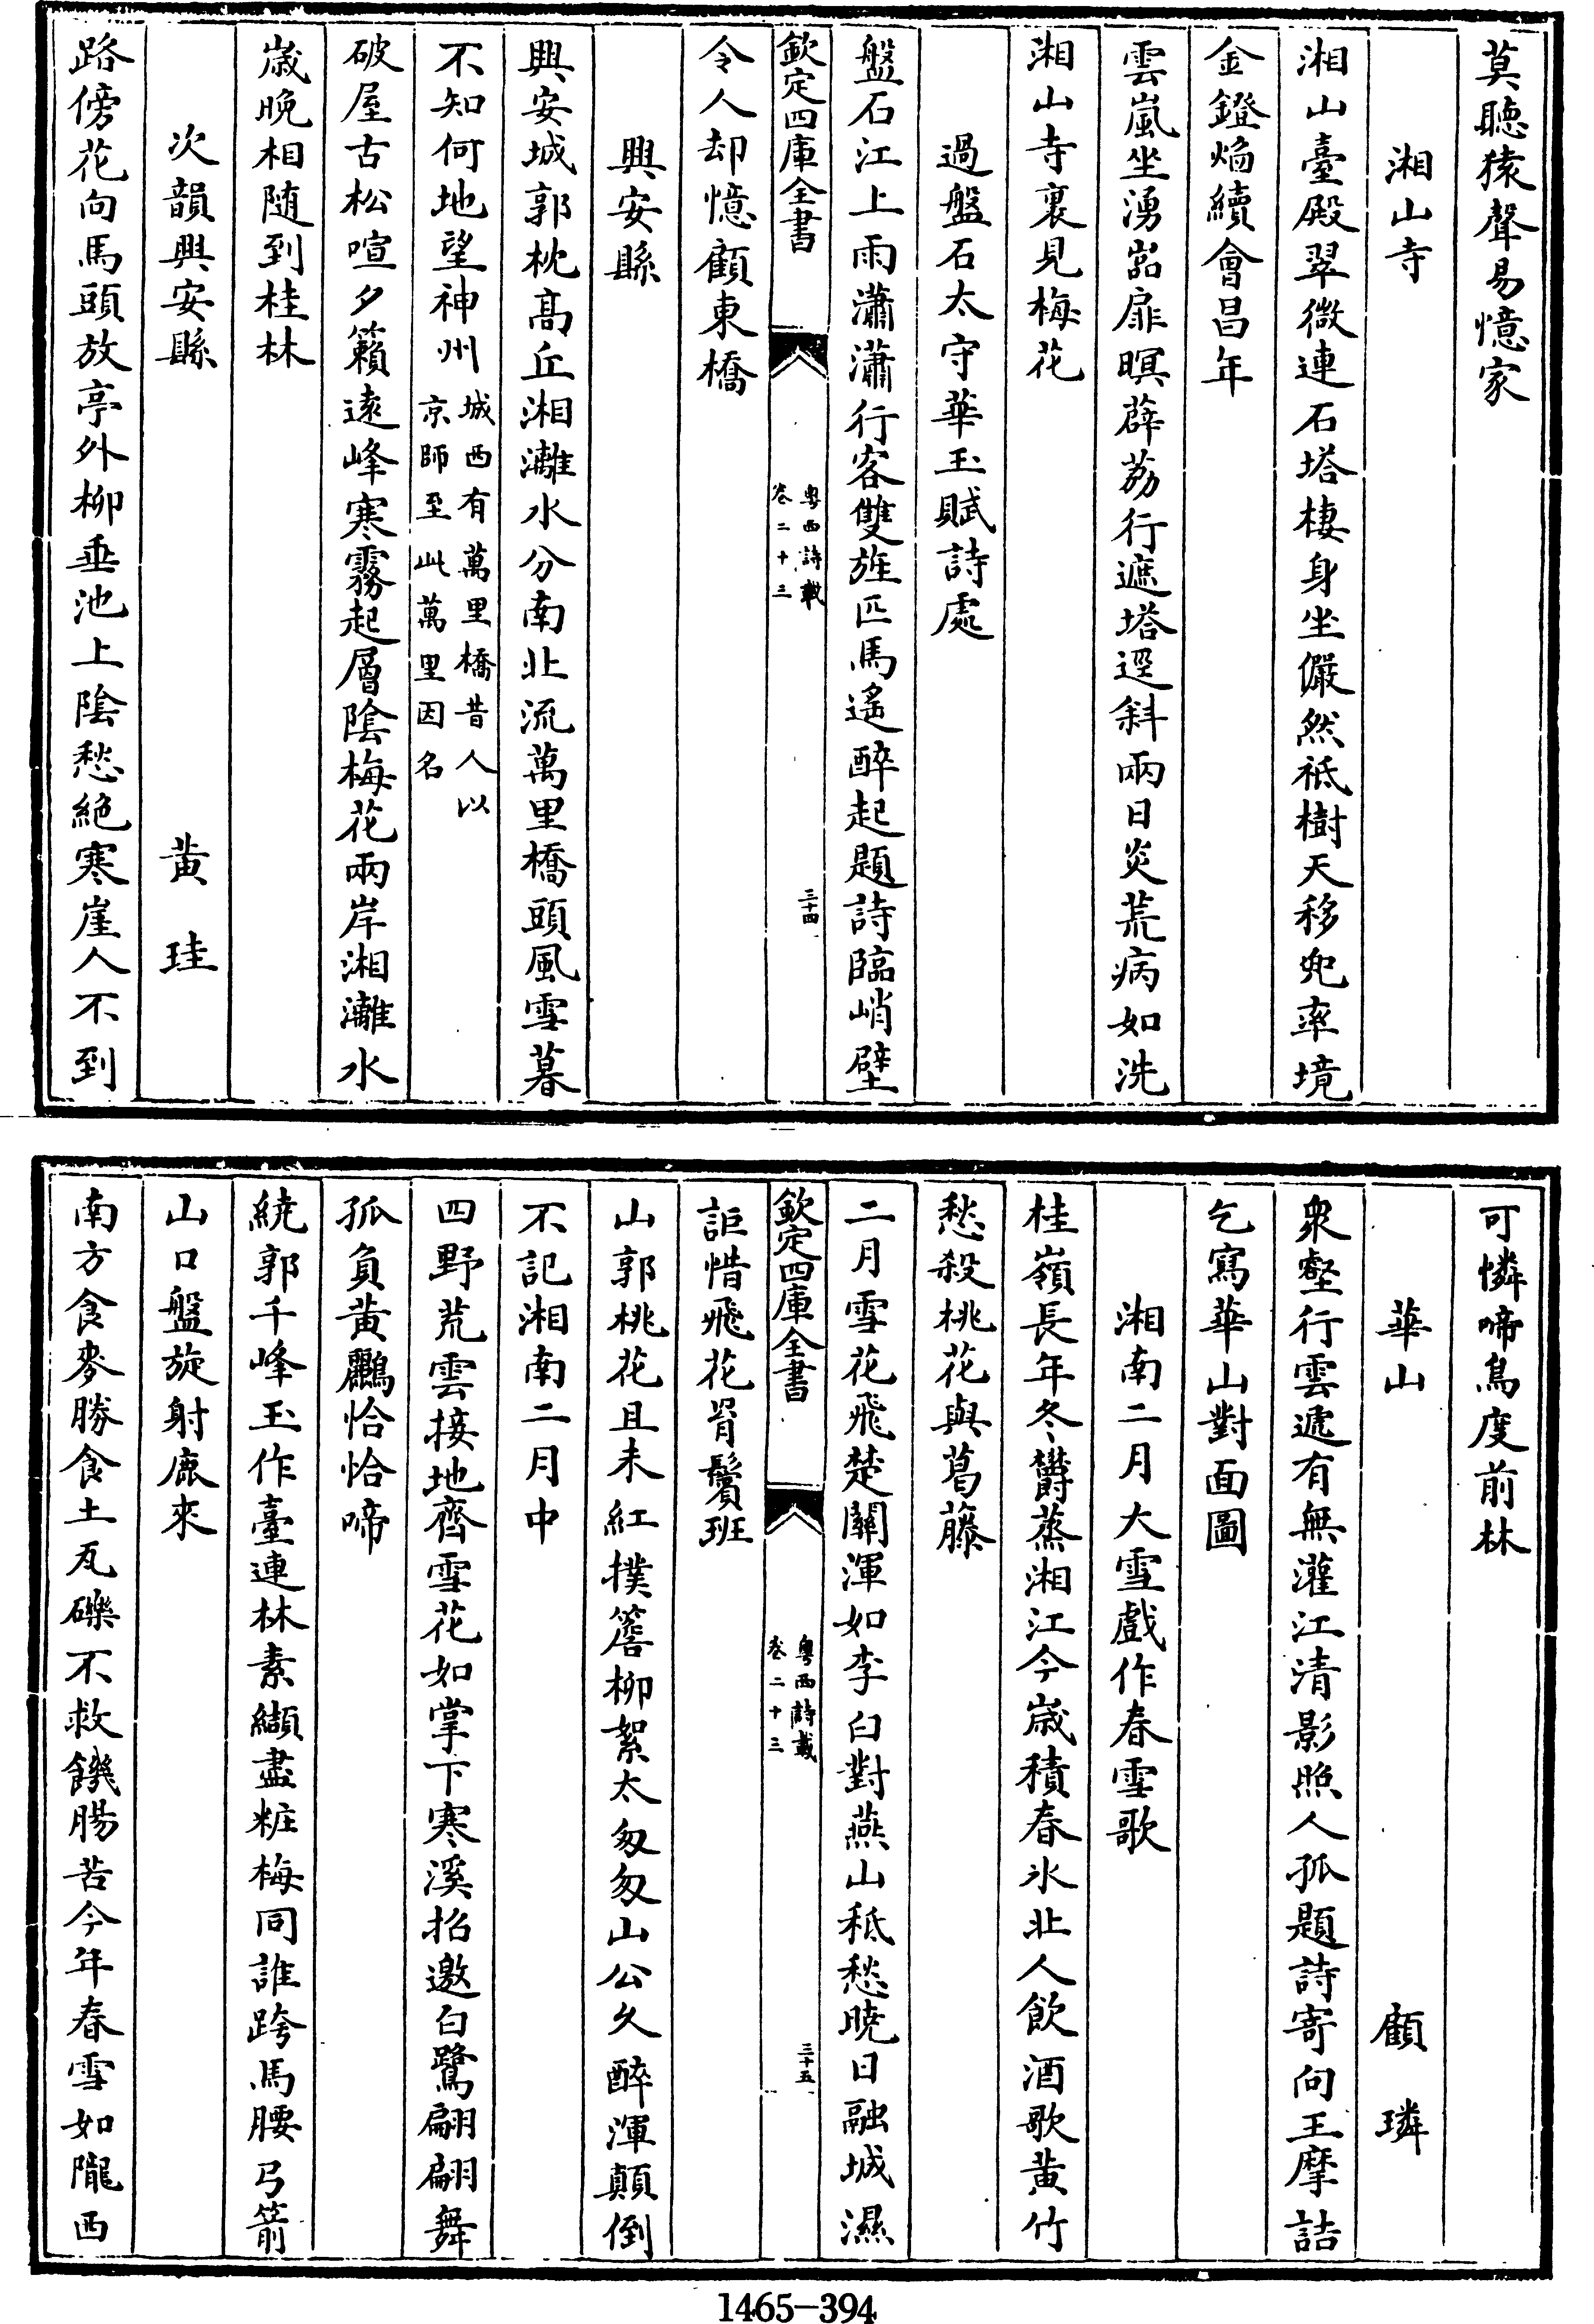 莫聽猿聲易憶家
湘山寺
湘山臺殿翠微連石塔棲身坐儼然祗樹天移兜率境
金鐙焔續會昌年
雲嵐坐湧嵓扉暝薜荔行遮塔逕斜兩日炎荒病如洗
湘山寺裏見梅花
過盤石太守華玉賦詩處
盤石江上雨瀟瀟行客雙旌匹馬遙醉起題詩臨峭壁
欽定四庫全書
粤西詩載
卷二十三
三十四
令人却憶顧東橋
興安縣
興安城郭枕高丘湘灕水分南北流萬里橋頭風雪暮
不知何地望神州城西有萬里橋昔人以
京師至此萬里因名
破屋古松喧夕籟遠峰寒霧起層陰梅花兩岸湘灕水
歲晚相随到桂林
次韻興安縣 黄珪
路傍花向馬頭放亭外柳垂池上陰愁絶寒崖人不到
可憐啼鳥度前林
華山 顧璘
衆壑行雲遞有無灌江清影照人孤題詩寄向王摩詰
乞寫華山對面圖
湘南二月大雪戲作春雪歌
桂嶺長年冬欝蒸湘江今歲積春氷北人飲酒歌黄竹
愁殺桃花與葛藤
二月雪花飛楚關渾如李白對燕山秪愁曉日融城濕
欽定四庫全書
粤西詩載
卷二十三
三十五
詎惜飛花罥鬢班
山郭桃花且未紅撲簷柳絮太匆匆山公久醉渾顛倒
不記湘南二月中
四野荒雲接地齊雪花如掌下寒溪招邀白鷺翩翩舞
孤負黄鸝恰恰啼
繞郭千峰玉作臺連林素纈盡粧梅同誰跨馬腰弓箭
山口盤旋射鹿來
南方食麥勝食土瓦礫不救饑腸苦今年春雪如隴西
1465-394